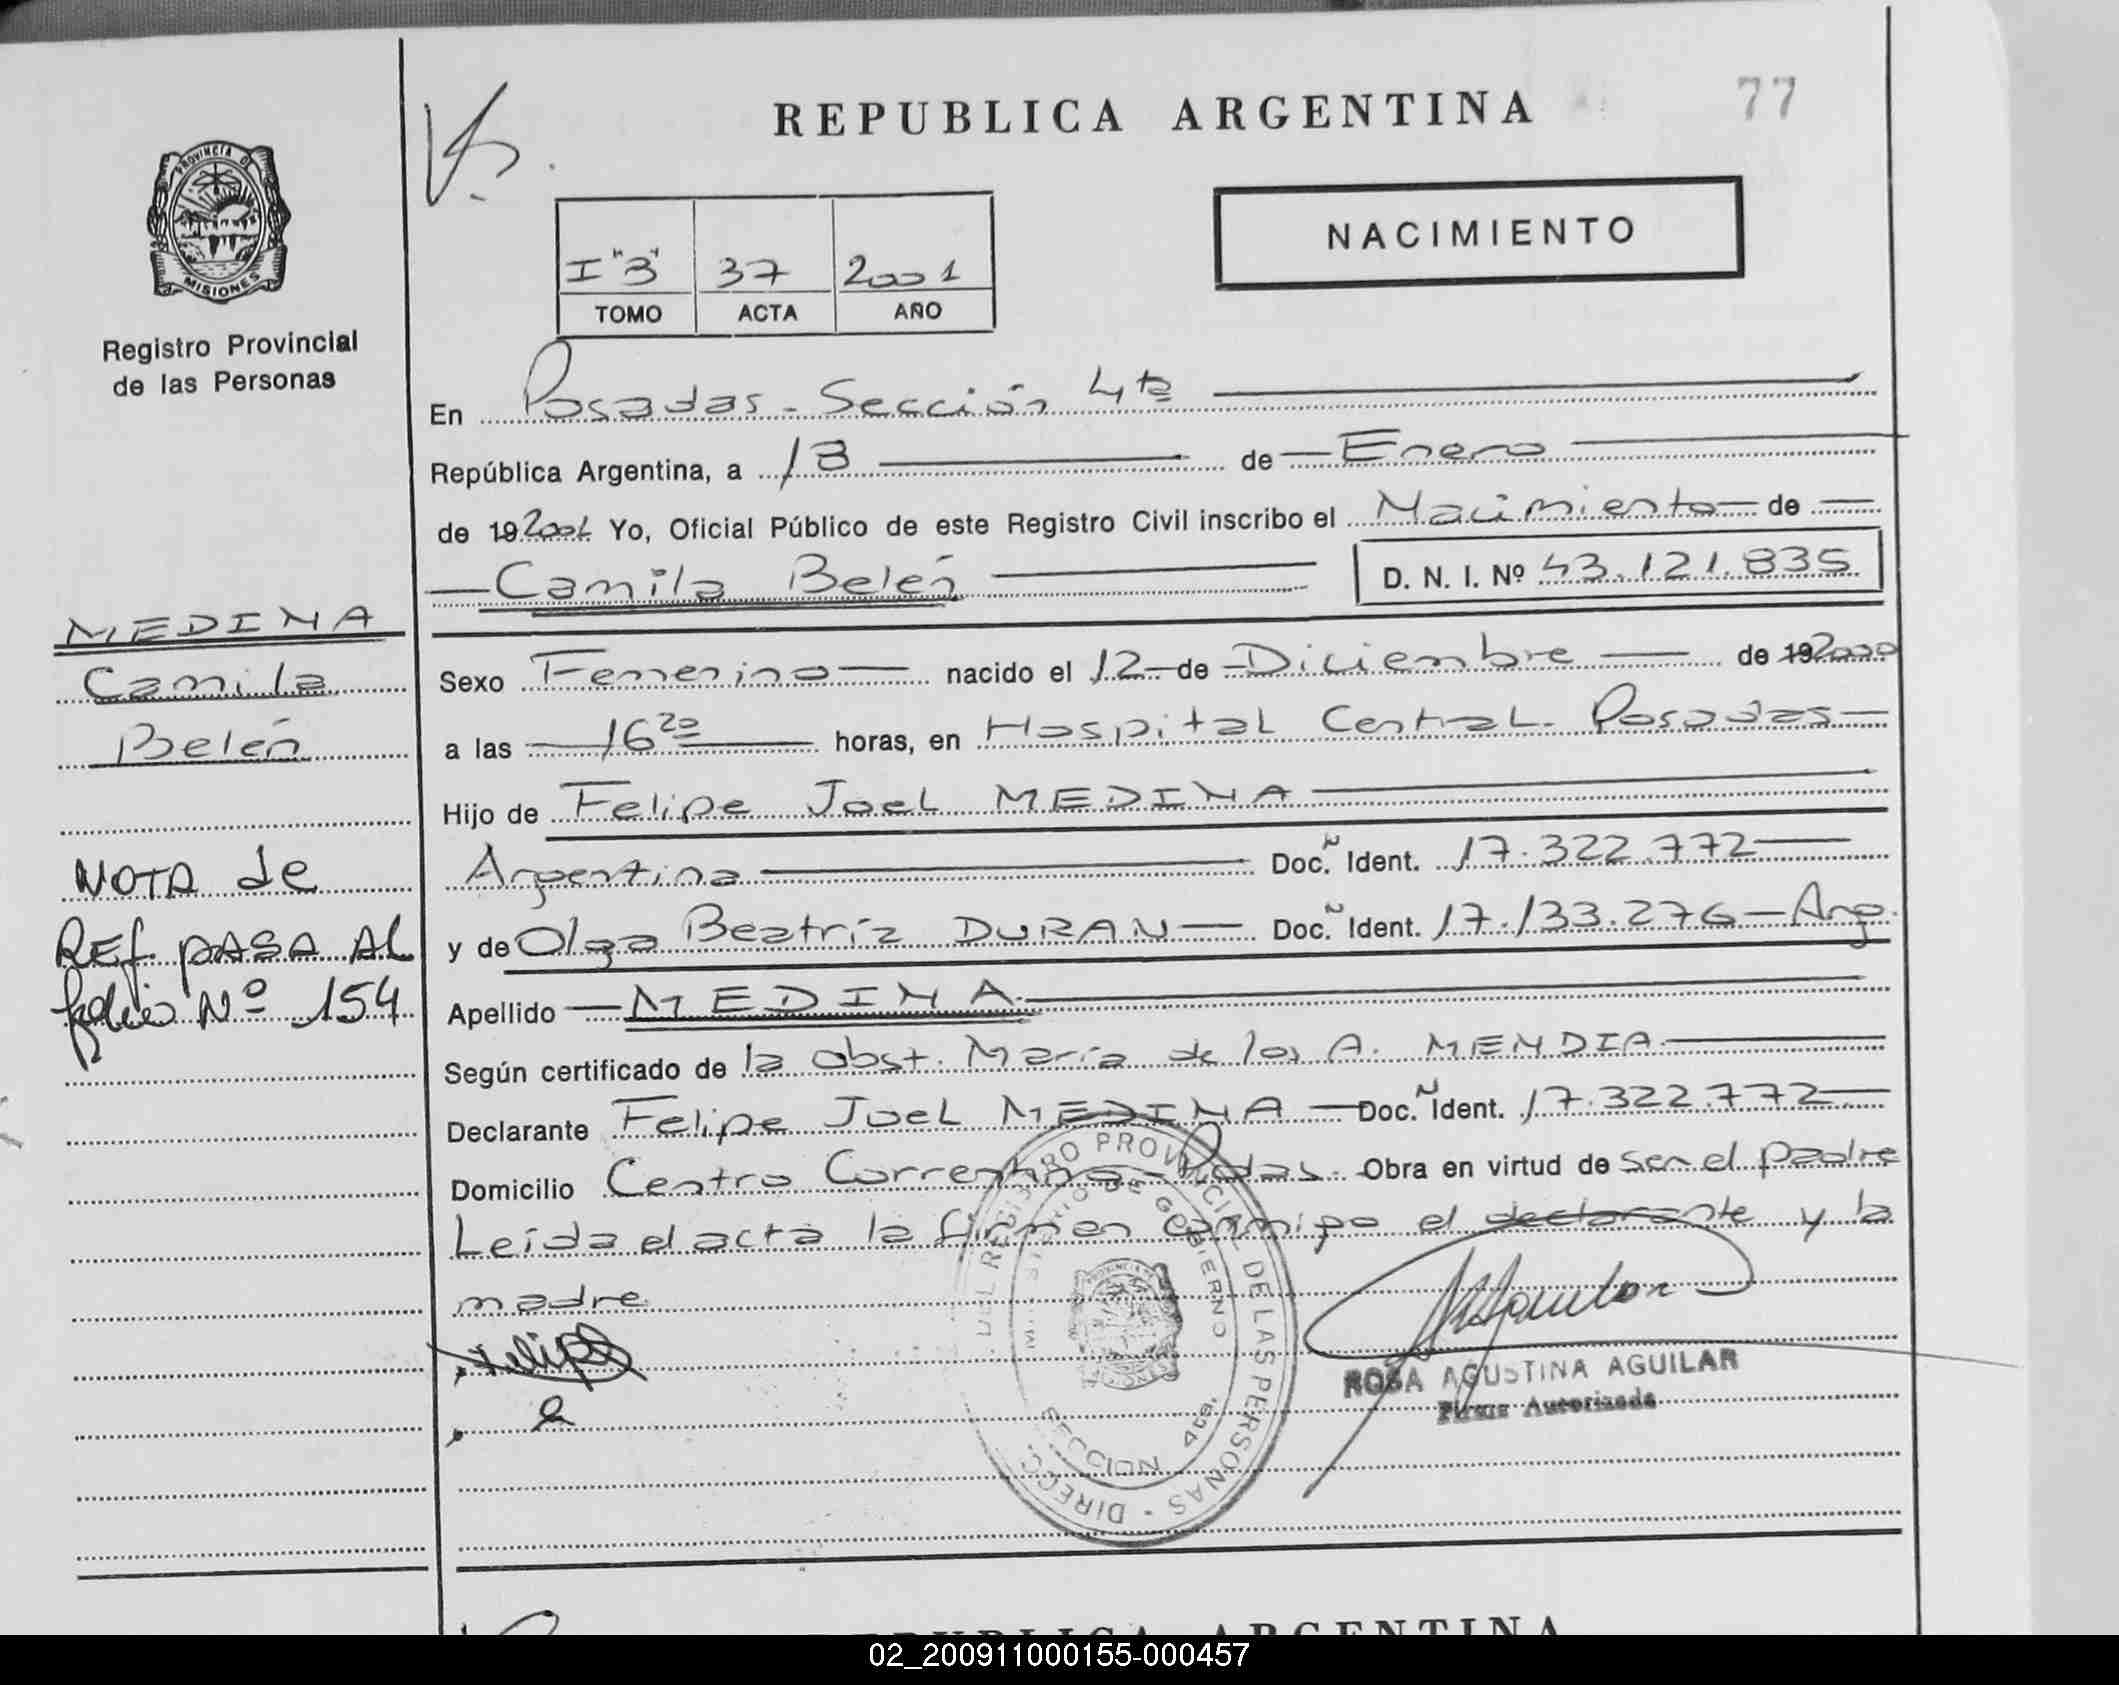 REPUBLICA ARGENTINA
77
PROVINCIA DE
MISIONES
Registro Provincial
de las Personas
NACIMIENTO
I "3" 37 2001
TOMO ACTA AÑO
En Posadas - Sección 4ta
República Argentina, a 18 de Enero
de 19 2001 Yo, Oficial Público de este Registro Civil inscribo el Nacimiento de
Camila Belén D. N. I. Nº 43.121.835
MEDINA
Camila
Belén
Sexo Femenino nacido el 12 de Diciembre de 19 2000
a las 16 20 horas, en Hospital Central - Posadas
Hijo de Felipe Joel MEDINA
Argentina Doc. N Ident. 17.322.772
y de Olga Beatríz DURAN Doc. N Ident. 17.133.276 - Arg.
Apellido MEDINA
Según certificado de la obst. María de los A. MENDIA
Declarante Felipe Joel MEDINA Doc. N Ident. 17.322.772
Domicilio Centro Correntino - Pdas. Obra en virtud de ser el padre
Leída el acta la firman conmigo el declarante y la
madre
NOTA de
REF. PASA AL
folio Nº 154
Felipe
DIRECC. DEL REGISTRO PROVINCIAL DE LAS PERSONAS
MINISTERIO DE GOBIERNO
SECCION 4ta.
ROSA AGUSTINA AGUILAR
Firma Autorizada
REPUBLICA ARGENTINA
02_200911000155-000457